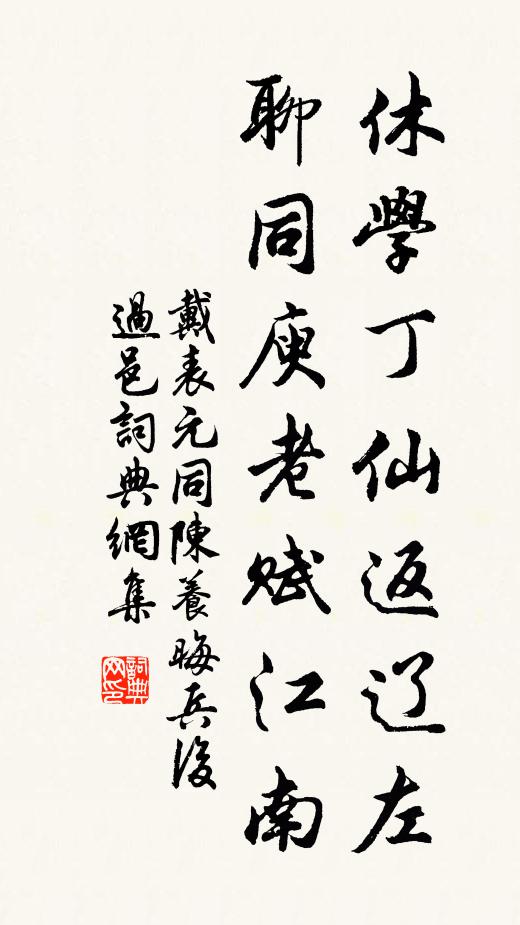 休學丁仙返辽左
聊同庾老赋江南
戴表元同陳養晦兵後
過邑詞典網集
詞典网印